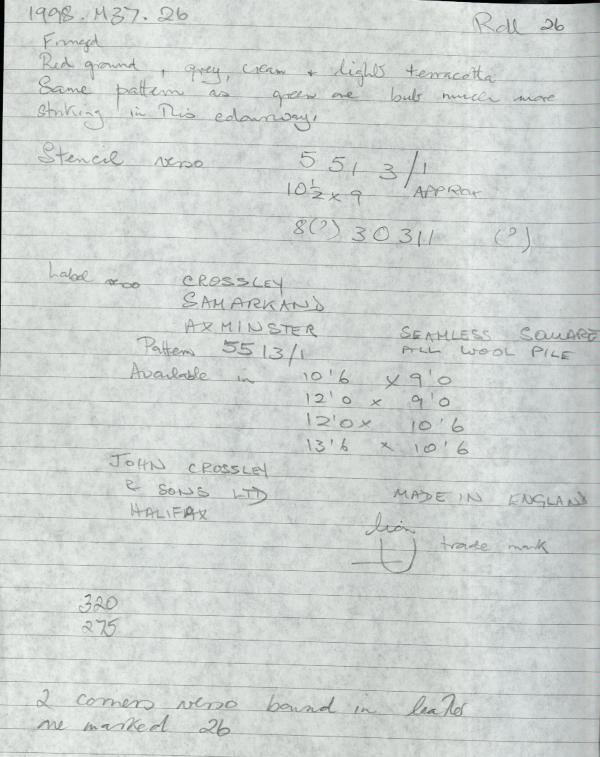 1998.M37.26 Roll 26
Fringed
Red ground, grey, cream + light terracotta
Same pattern as green one but much more
striking in this colourway.
Stencil verso 5 513/1
10½ x 9 APPROX
8(?) 30311 (?)
Label verso CROSSLEY
SAMARKAND
AXMINSTER SEAMLESS SQUARE
Pattern 5513/1 ALL WOOL PILE
Available in 10'6 x 9'0
12'0 x 9'0
12'0 x 10'6
13'6 x 10'6
JOHN CROSSLEY
& SONS LTD MADE IN ENGLAND
HALIFAX
lion
trade mark
320
275
2 corners verso bound in leather
one marked 26